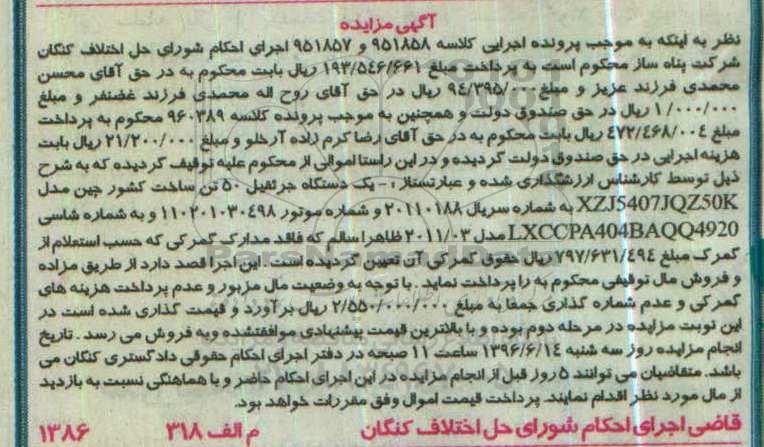 آگهی مزایده
نظر به اینکه به موجب پرونده اجرایی کلاسه ۹۵۱۸۵۸ و ۹۵۱۸۵۷ اجرای احکام شورای حل اختلاف کنگان
شرکت پناه ساز محکوم است به پرداخت مبلغ ۱۹۳/۵۴۶/۶۶۱ ریال بابت محکوم به در حق آقای محسن
محمدی فرزند عزیز و مبلغ ۹۴/۳۹۵/۰۰۰ ریال در حق آقای روح اله محمدی فرزند غضنفر و مبلغ
۱/۰۰۰/۰۰۰ ریال در حق صندوق دولت و همچنین به موجب پرونده کلاسه ۹۶۰۳۸۹ محکوم به پرداخت
مبلغ ۴۷۲/۴۶۸/۰۰۴ ریال بابت محکوم به در حق آقای رضا کرم زاده آرخلو و مبلغ ۲۱/۲۰۰/۰۰۰ ریال بابت
هزینه اجرایی در حق صندوق دولت گردیده و در این راستا اموالی از محکوم علیه توقیف گردیده که به شرح
ذیل توسط کارشناس ارزشگذاری شده و عبارتستاز :- یک دستگاه جرثقیل ۵۰ تن ساخت کشور چین مدل
XZJ5407JQZ50K به شماره سریال ۲۰۱۱۰۱۸۸ و شماره موتور ۱۱۰۲۰۱۰۳۰۴۹۸ و به شماره شاسی
LXCCPA404BAQQ4920 مدل ۲۰۱۱/۰۳ ظاهرا سالم که فاقد مدارک گمرکی که حسب استعلام از
گمرک مبلغ ۷۹۷/۶۳۱/۴۹۴ ریال حقوق گمرکی آن تعیین گردیده است . این اجرا قصد دارد از طریق مزاده
و فروش مال توقیفی محکوم به را پرداخت نماید . با توجه به وضعیت مال مزبور و عدم پرداخت هزینه های
گمرکی و عدم شماره گذاری جمعا به مبلغ ۲/۵۵۰/۰۰۰/۰۰۰ ریال برآورد و قیمت گذاری شده است در
این نوبت مزایده در مرحله دوم بوده و با بالاترین قیمت پیشنهادی موافقتشده وبه فروش می رسد . تاریخ
انجام مزایده روز سه شنبه ۱۳۹۶/۶/۱۴ ساعت ۱۱ صبحه در دفتر اجرای احکام حقوقی دادگستری کنگان می
باشد. متقاضیان می توانند ۵ روز قبل از انجام مزایده در این اجرای احکام حاضر و با هماهنگی نسبت به بازدید
از مال مورد نظر اقدام نمایند. پرداخت قیمت اموال وفق مقررات خواهد بود.
قاضی اجرای احکام شورای حل اختلاف کنگان م الف ۳۱۸ ۱۳۸۶